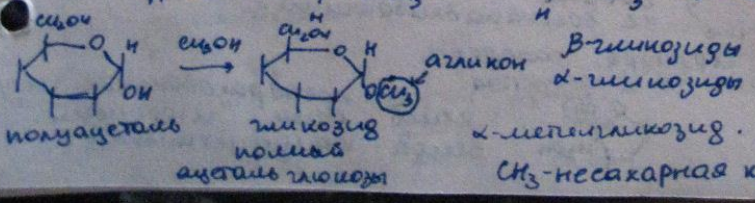 CH₂OH
O H
CH₃OH
OH
полуацеталь
H
CH₂OH
O H
OCH₃
агликон
гликозид
полный
ацеталь глюкозы
β-гликозиды
α-гликозиды
α-метилгликозид.
CH₃-несахарная